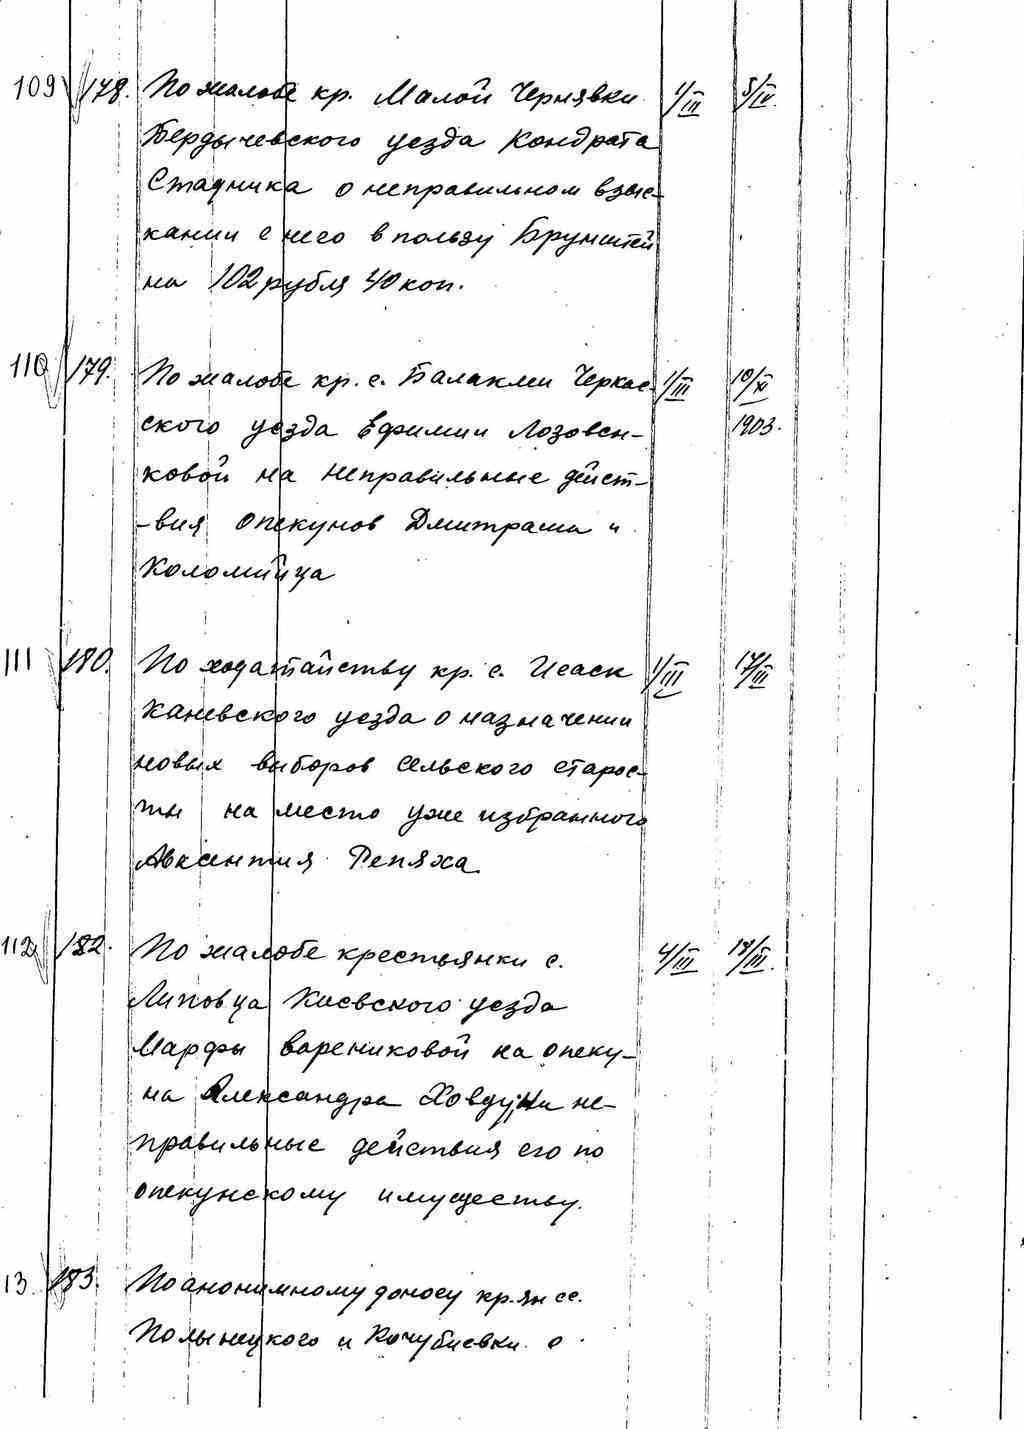 109 178. По жалобе кр. Малой Чернявки 1/III 5/IV.
Бердычевского уезда Кондрата
Стадника о неправильном взыс-
кании с него в пользу Брунштей
на 102 рубля 40 коп.
110 179. По жалобе кр. с. Балаклеи Черкас- 1/III 10/XI
ского уезда Ефимии Лозовен- 1903.
ковой на неправильные дейст-
-вия опекунов Дмитраша и
Коломийца
111 180. По ходатайству кр. с. Исаек 1/III 17/III
Каневского уезда о назначении
новых выборов сельского старос-
ты на место уже избранного
Авксентия Репяха
112 182. По жалобе крестьянки с. 4/III 18/III.
Липовца Киевского уезда
Марфы Варениковой на опеку-
на Александра Ховдуна не-
правильные действия его по
опекунскому имуществу.
13. 183. По анонимному доносу кр.ян сс.
Полынецкого и Кочубиевки о